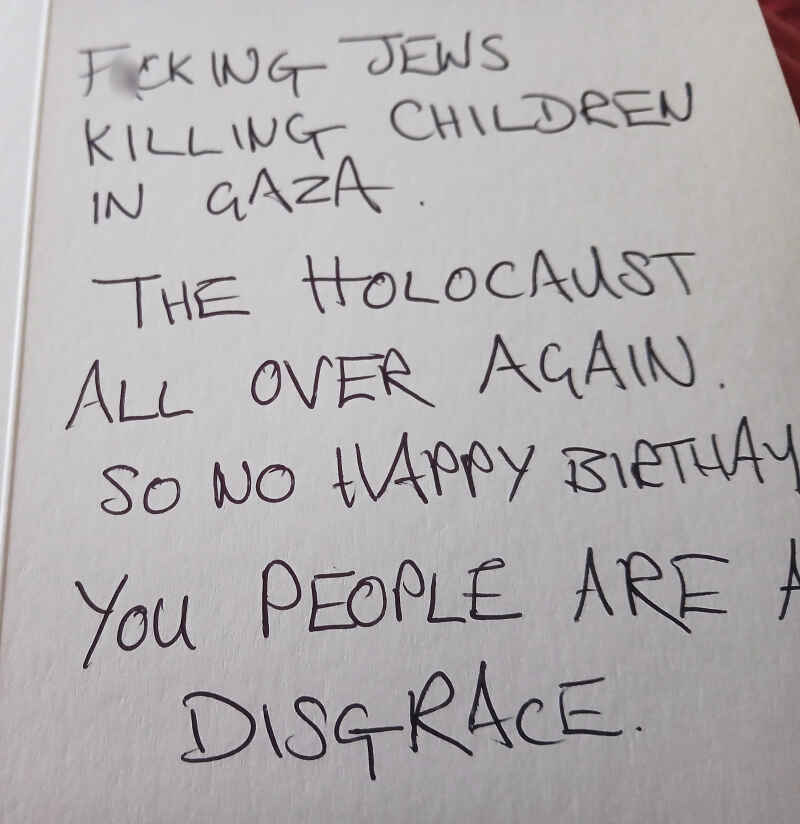 F CKING JEWS
KILLING CHILDREN
IN GAZA.
THE HOLOCAUST
ALL OVER AGAIN.
SO NO HAPPY BIRTHAY
YOU PEOPLE ARE A
DISGRACE.